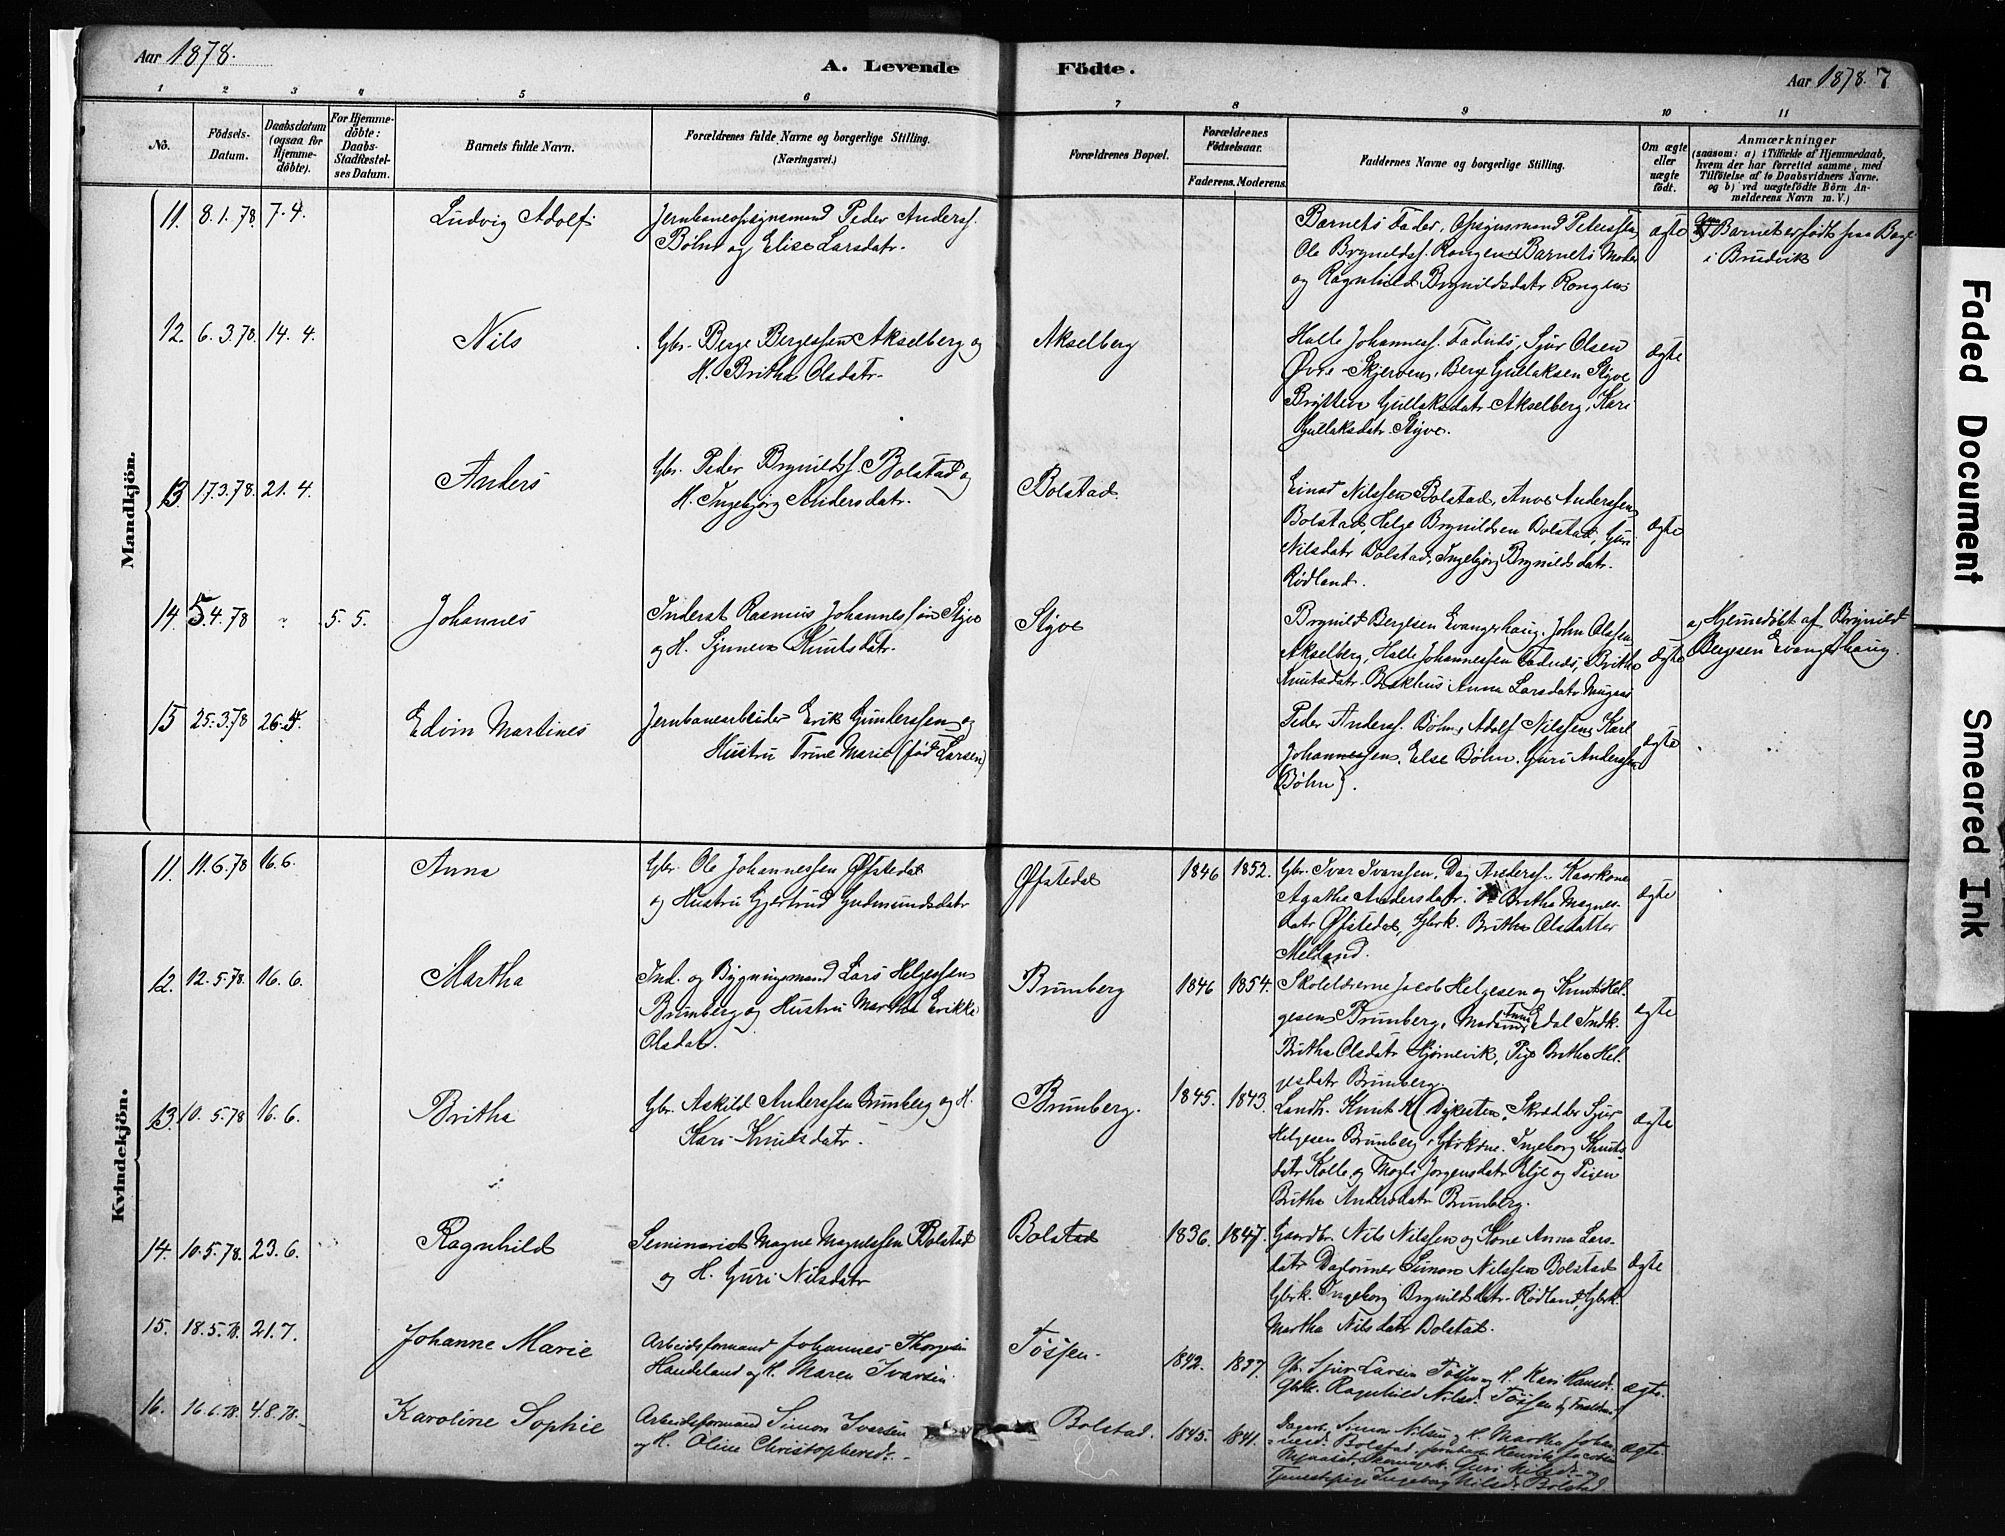 Aar 1878.
A. Levende Födte.
Aar 1878. 7
1 2 3 4 5 6 7 8 9 10 11
No.
Födsels-Datum.
Daabsdatum (ogsaa for Hjemmedöbte).
For Hjemmedöbte: Daabs-Stadfestelses Datum.
Barnets fulde Navn.
Forældrenes fulde Navne og borgerlige Stilling. (Næringsvei.)
Forældrenes Bopæl.
Forældrenes Födselsaar.
Faderens. Moderens.
Faddernes Navne og borgerlige Stilling.
Om ægte eller uægte födt.
Anmærkninger
(saasom: a) i Tilfælde af Hjemmedaab, hvem der har forrettet samme, med Tilföielse af to Daabsvidners Navne, og b) ved uægtefödte Börn Anmelderens Navn m. V.)
Mandkjön.
11. 8.1.78. 7.4. Ludvig Adolf
Jernbaneopsynsmand Peder Anderss.
Bøhn og Elise Larsdatr.
Barnets Fader, Opsynsmand
Ole Brynildss. Rongen Barnets Moder
og Ragnhild Brynildsdatr Rongen
ægte
Barnet er født paa
i Brudvik
12. 6.3.78. 14.4. Nils
Gbr. Berge Bergessen Akselberg og
H. Britha Olsdatr.
Akselberg
Halle Johanness. Fadnes, Sjur Olsen
Øvre-Skjerven, Berge Gullaksen Styve
Gullaksdatr Akselberg, Kari
Gullaksdatr Styve.
ægte
13. 17.3.78. 21.4. Anders
Gbr. Peder Brynildss. Bolstad og
H. Ingebjørg Andersdatr.
Bolstad.
Einar Nilssen Bolstad, Anderssen
Bolstad, Helge Brynildsen Bolstad, Guri
Nilsdatr Bolstad, Ingebjørg Brynildsdatr.
Rødland.
ægte
14. 5.4.78 " 5.5. Johannes
Inderst Rasmus Johannessøn Styve
og H. Synneva Knutsdatr.
Styve
Brynild Bergesen Evangerhaug, John Olssen
Akselberg, Halle Johannessen Fadnes, Britha
Knutsdatr Anna Larsdatr
ægte
a) Hjemmedøbt af Brynild
Bergesen Evangerhaug.
15 25.3.78 26.5. Edvin Martines
Jernbanearbeider Erik Gunderssen og
Hustru Trine Marie (født Larsen)
Peder Anderss. Bøhn, Adolf Nilssen, Karl
Johannessen, Else Bøhn, Guri Anderssen
(Bøhn).
ægte
Kvindekjön.
11. 11.6.78 16.6. Anna
Gbr. Ole Johannessen Øfstedal
og Hustru Gjertrud Gudmundsdatr
Øfstedal
1846 1852.
Gbr. Ivar Ivarssen, Dag Anderss. Kaarkone
Agatha Andersdatr. Britha Magnes-
datr Øfstedal, Gbrk. Britha Olsdatter
Meland.
ægte
12. 12.5.78 16.6. Martha
Ind. og Bygningsmand Lars Helgessen
Brunberg og Hustru Martha Erikke
Olsdatr.
Brunberg
1846 1854.
Skolelærerne Jacob Helgesen og Knut Hel-
gesen Brunberg, Madam Edal Indk.
Britha Olsdatr Hjørnevik, Pige Britha Hel-
gesdatr Brunberg.
ægte
13. 10.5.78 16.6. Britha
Gbr. Askild Anderssen Brunberg og H.
Kari Knutsdatr.
Brunberg.
1845. 1843.
Landh. Knut Dykesten, Skrædder Sjur
Helgesen Brunberg, Gbrkone. Ingeborg Knuts-
datr Kolle og Jorgensdatr og Pigen
Britha Andersdatr Brunberg.
ægte
14. 10.5.78. 23.6. Ragnhild
Seminarist Magne Magnessen Bolstad
og H. Guri Nilsdatr
Bolstad
1836. 1847.
Gaardbr. Nils Nilssen og Kone Anna Lars-
datr Daglønner Simon Nilssen Bolstad
Gbrk. Ingeborg Brynildsdatr Rødland, Gbrk.
Martha Nilsdatr Bolstad.
ægte
15. 18.5.78. 21.7. Johanne Marie
Arbeidsformand Johannes Thorgesen
Handeland og H. Maren Ivarsen
Tøssen.
1842. 1837.
Gb. Sjur Larsen Tøssen og H. Kari
Gbrk. Ragnhild Nilsd. Tøssen
ægte
16. 16.6.78. 4.8.78. Karoline Sophie
Arbeidsformand Simon Ivarsen
og H. Oline Christophersd.
Bolstad.
1845. 1841.
Simon Nilsen og H. Martha Johan-
nesd. Bolstad, Henrik Jacobsen
Guri Nilsd. og
Tjenestepige Ingeborg Nilsd. Bolstad
ægte
Faded Document
Smeared Ink